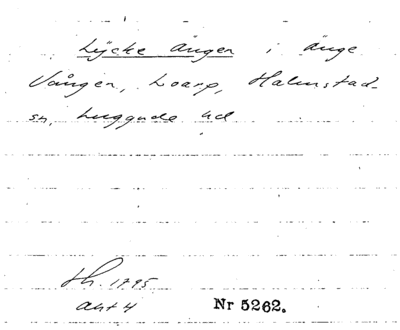 Lycke ängen i änge
Vången, Loarp, Halmstad-
sn, Luggude hd
th. 1795
akt 4
Nr 5262.